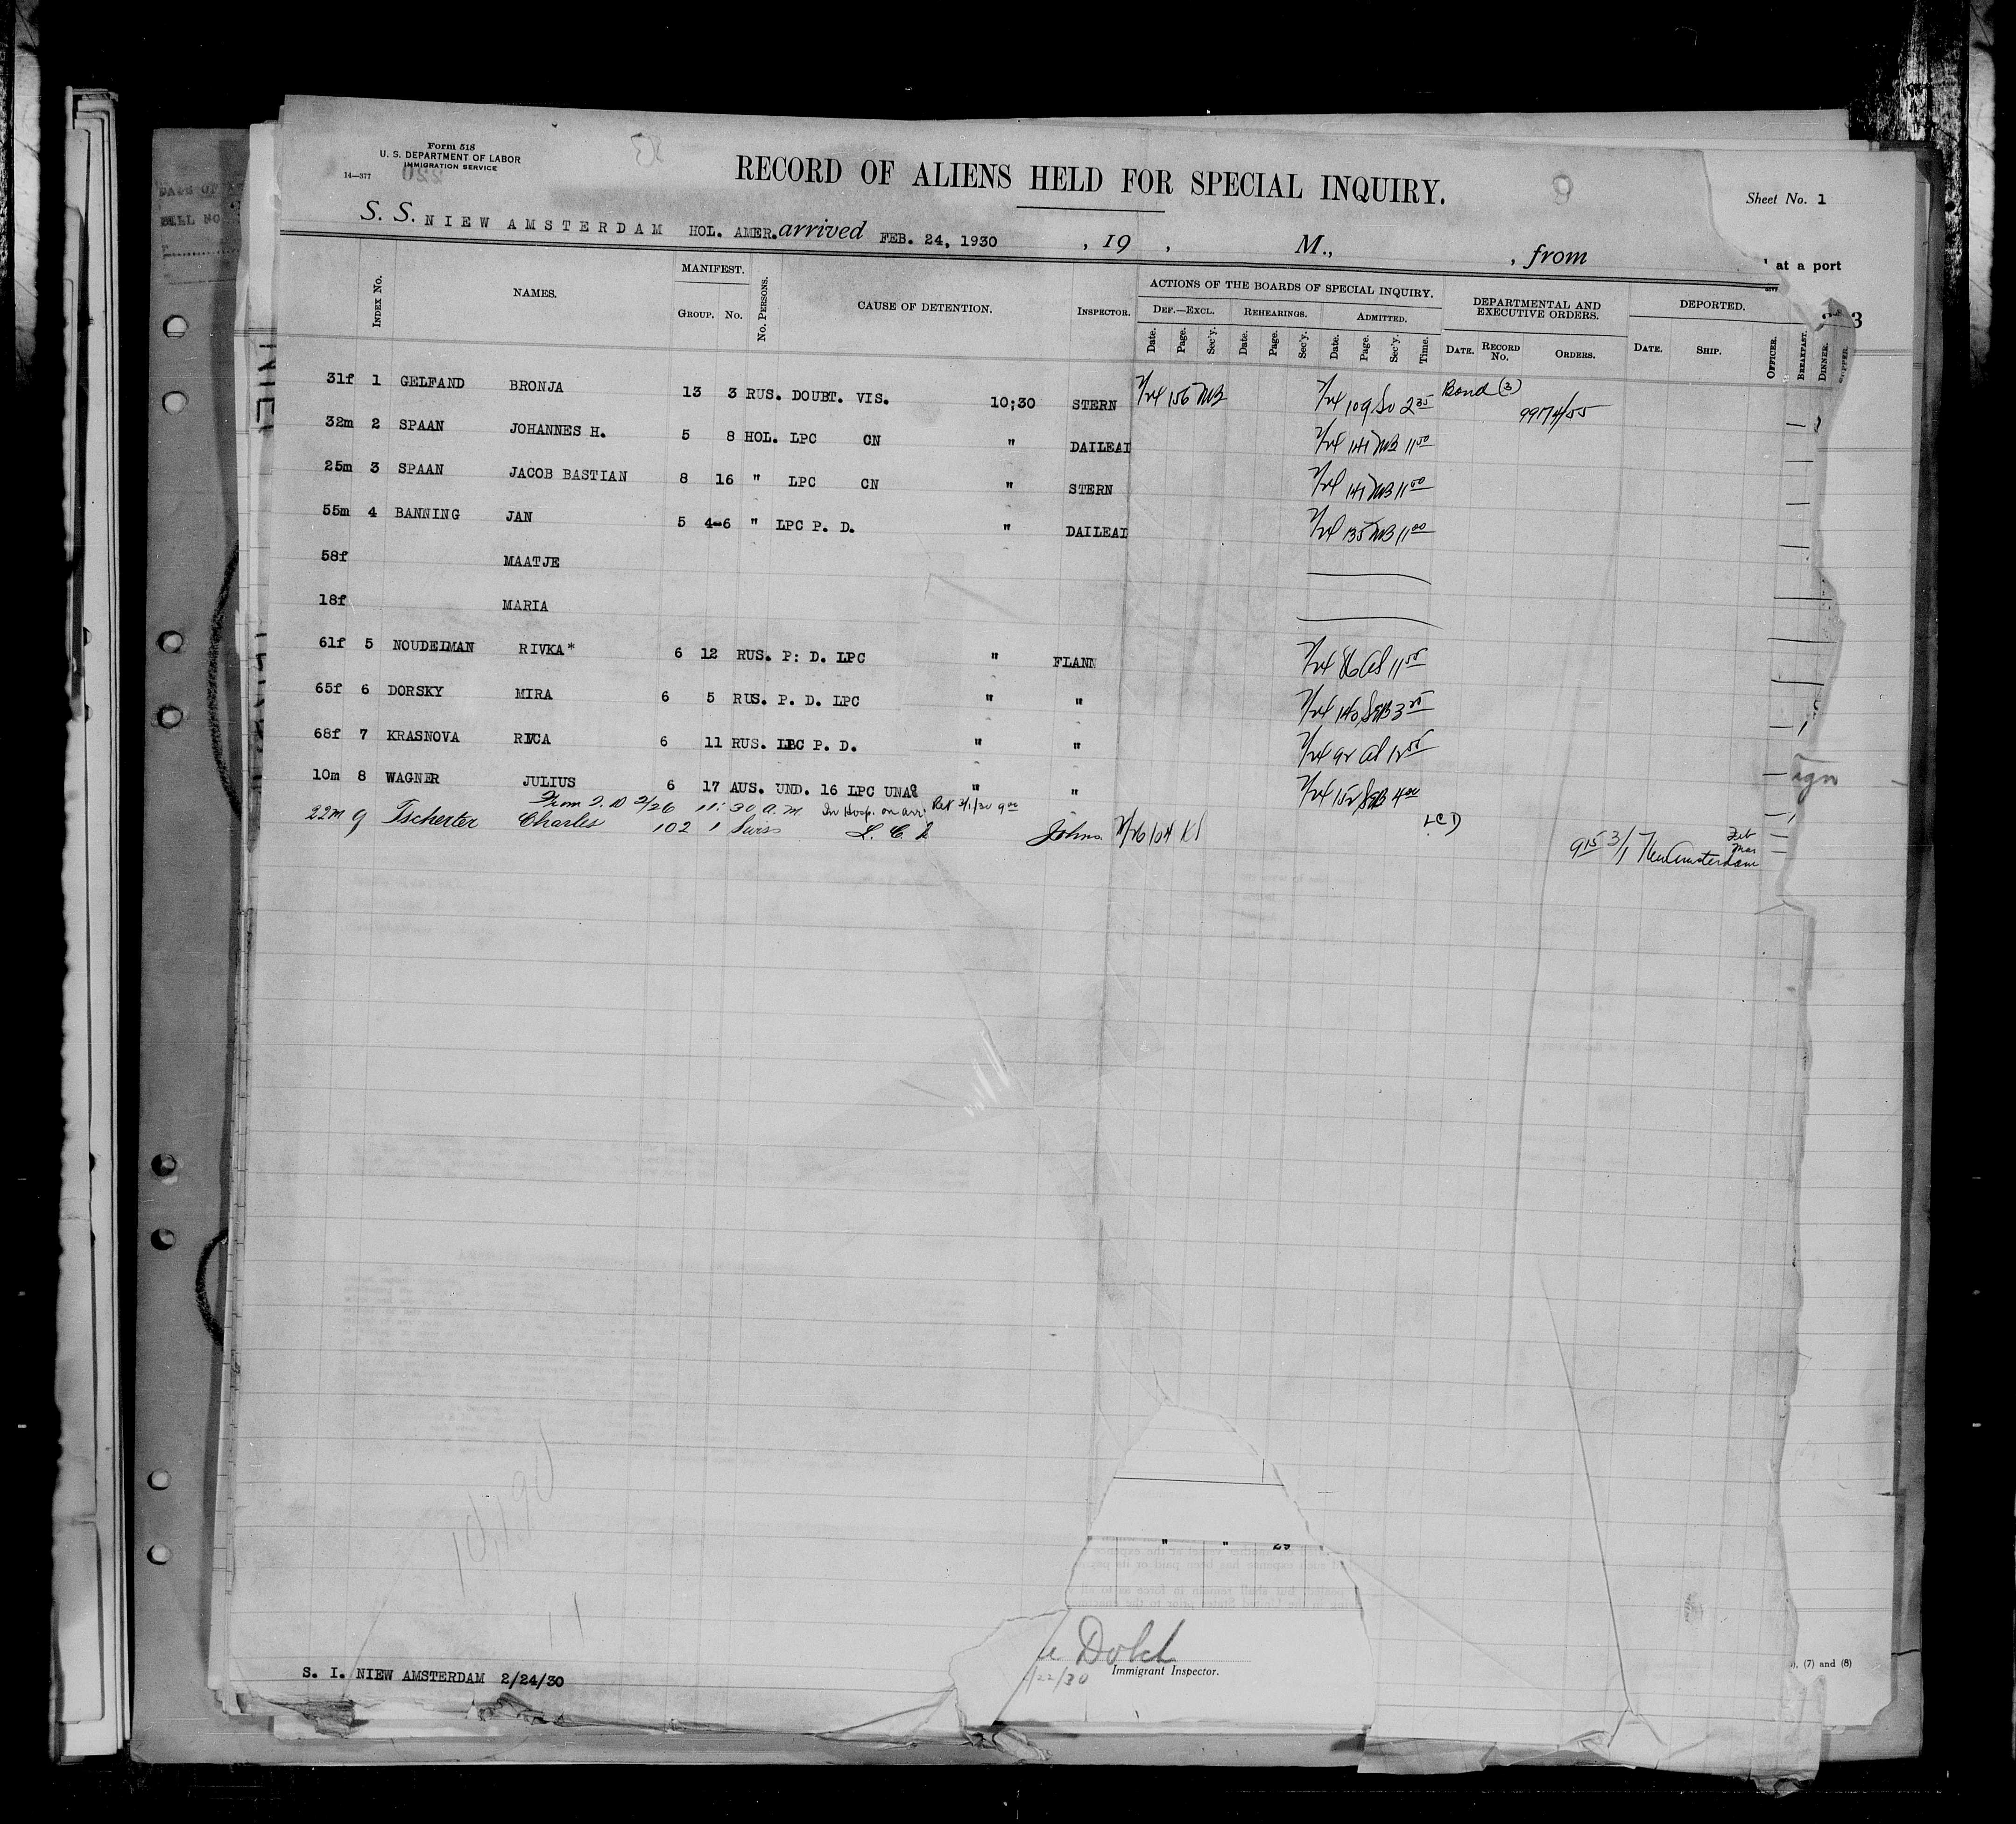 Form 518
U. S. DEPARTMENT OF LABOR
IMMIGRATION SERVICE
14—377
RECORD OF ALIENS HELD FOR SPECIAL INQUIRY.
Sheet No. 1
S. S. NIEW AMSTERDAM HOL. AMER. arrived FEB. 24, 1930 , 19 , M., , from
at a port
INDEX No. NAMES. MANIFEST. GROUP. No. No. PERSONS. CAUSE OF DETENTION. INSPECTOR. ACTIONS OF THE BOARDS OF SPECIAL INQUIRY. DEPARTMENTAL AND EXECUTIVE ORDERS. DEPORTED.
DEF.—EXCL. REHEARINGS. ADMITTED.
Date. Page. Sec'y. Date. Page. Sec'y. Date. Page. Sec'y. Time. DATE. RECORD No. ORDERS. DATE. SHIP. OFFICER. BREAKFAST. DINNER. SUPPER.
31f 1 GELFAND BRONJA 13 3 RUS. DOUBT. VIS. 10;30 STERN 2/24 156 MB 2/24 109 2 35 Bond (3)
99174/55
32m 2 SPAAN JOHANNES H. 5 8 HOL. LPC CN " DAILEAI 2/24 141 MB 11 50
25m 3 SPAAN JACOB BASTIAN 8 16 " LPC CN " STERN 2/24 141 MB 11 50
55m 4 BANNING JAN 5 4-6 " LPC P. D. " DAILEAI 2/24 135 MB 11 00
58f MAATJE
18f MARIA
61f 5 NOUDELMAN RIVKA* 6 12 RUS. P: D. LPC " FLANN 2/24 86 11 55
65f 6 DORSKY MIRA 6 5 RUS. P. D. LPC " " 2/24 140
68f 7 KRASNOVA RIVCA 6 11 RUS. LPC P. D. " " 2/24 92
10m 8 WAGNER JULIUS 6 17 AUS. UND. 16 LPC UNA " " 2/24 152 4 00
From 2/26 11:30 a.m. In Hosp. on arr. 3/1/30 9 00
22m 9 Tscherter Charles 102 1 Swiss Johns 2/26 104
9 15 3/1 New Amsterdam
Feb
Mar
Dolch
/22/30 Immigrant Inspector.
S. I. NIEW AMSTERDAM 2/24/30
, (7) and (8)